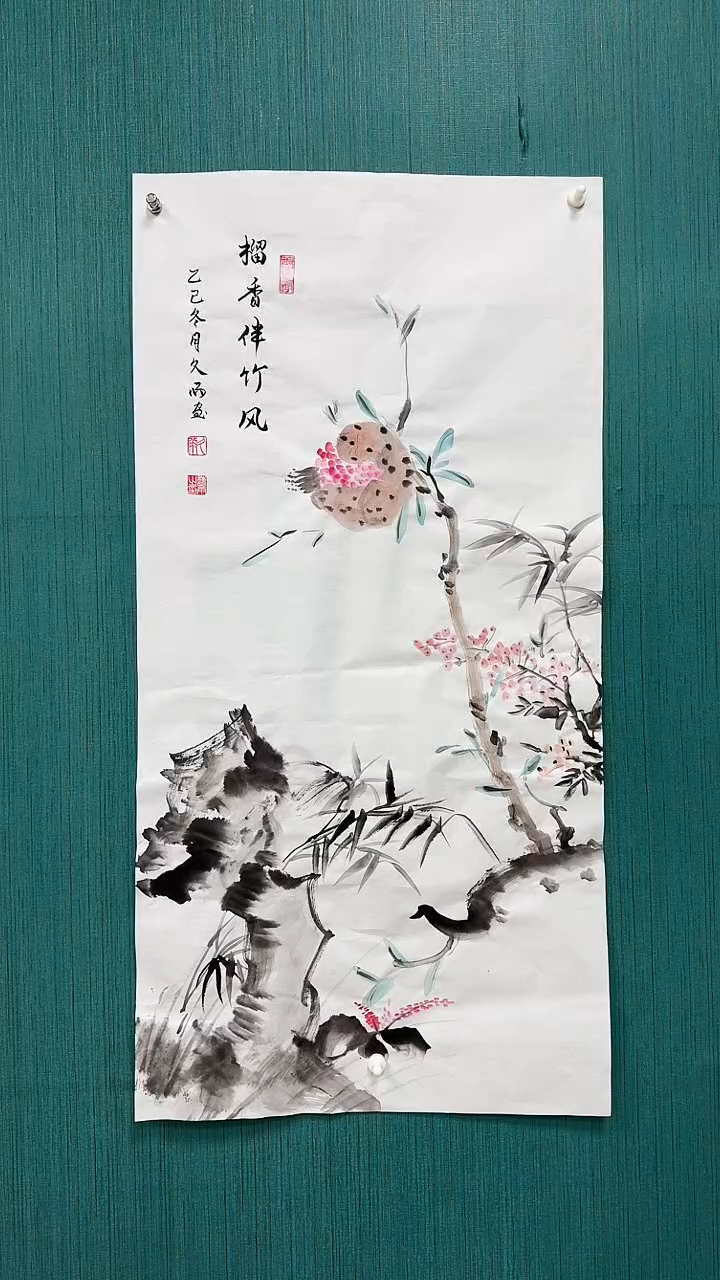 榴香伴竹风
乙巳冬月久雨画